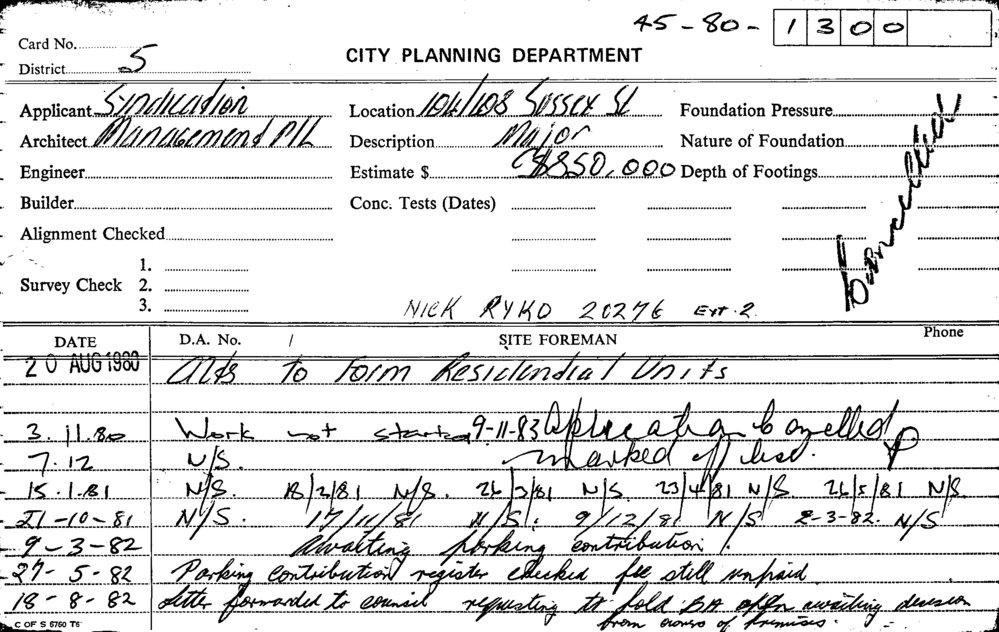 45-80-1300
Card No.
District 5
CITY PLANNING DEPARTMENT
Applicant Syndication Location 104/108 Sussex St Foundation Pressure
Architect Management P/L Description Major Nature of Foundation
Engineer Estimate $ $850,000 Depth of Footings
Builder Conc. Tests (Dates)
Cancelled
Alignment Checked
1.
Survey Check 2.
3.
NICK RYKO 20276 Ext. 2.
DATE D.A. No. / SITE FOREMAN Phone
20 AUG 1980 Alts to Form Residendial Units
3.11.80 Work not started 9-11-83 Application Cancelled
7.12 N/S. marked off list.
15.1.81 N/S. 18/2/81 N/S. 26/3/81 N/S. 23/4/81 N/S 26/5/81 N/S.
21-10-81 N/S. 17/11/81 N/S. 9/12/81 N/S 2-3-82. N/S
9-3-82 Awaiting parking contribution.
27-5-82 Parking contribution register checked fee still unpaid
18-8-82 Letter forwarded to council requesting to hold BA open awaiting decision
from owners of premises.
C OF S 5760 T6